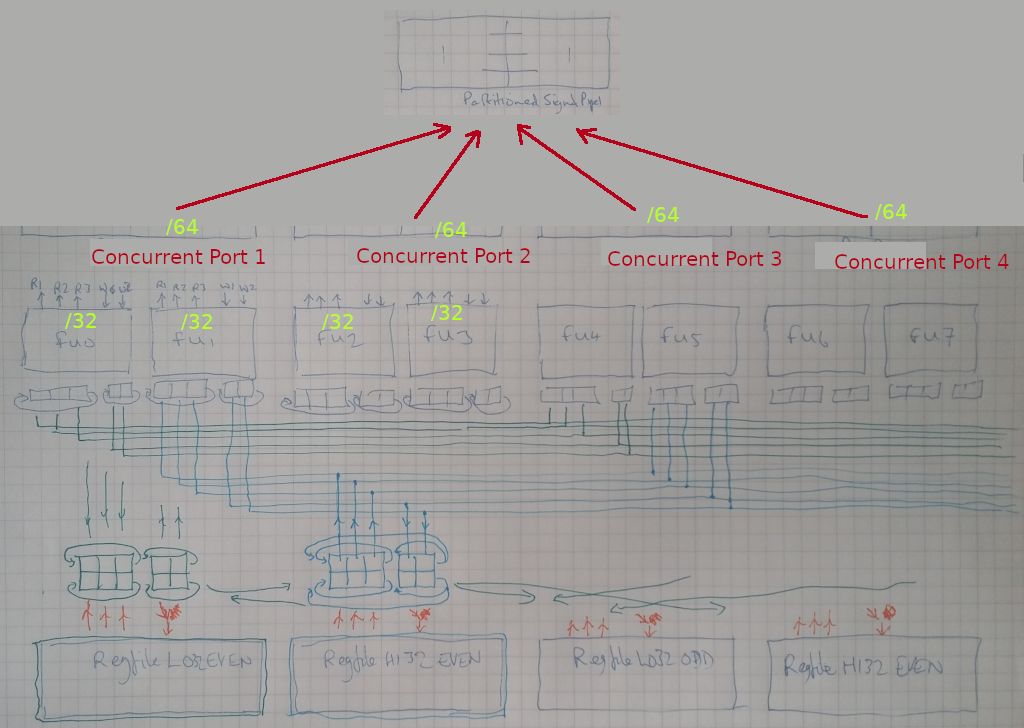 Partitioned Signal Pipe
/64 /64 /64 /64
Concurrent Port 1 Concurrent Port 2 Concurrent Port 3 Concurrent Port 4
R1 R2 R3 W1 W2 R1 R2 R3 W1 W2
/32 /32 /32 /32
fu0 fu1 fu2 fu3 fu4 fu5 fu6 fu7
Regfile LO32EVEN Regfile HI32 EVEN Regfile LO32 ODD Regfile HI32 EVEN